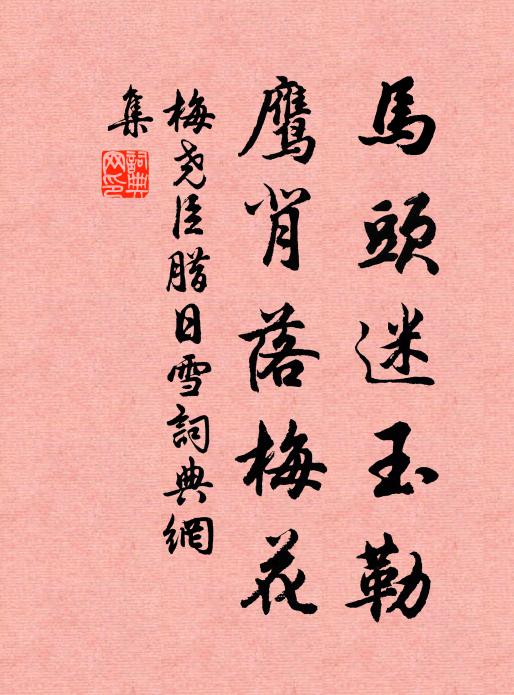 馬頭迷玉勒
鷹背落梅花
梅尧臣腊日雪詞典網
集
詞典
网印